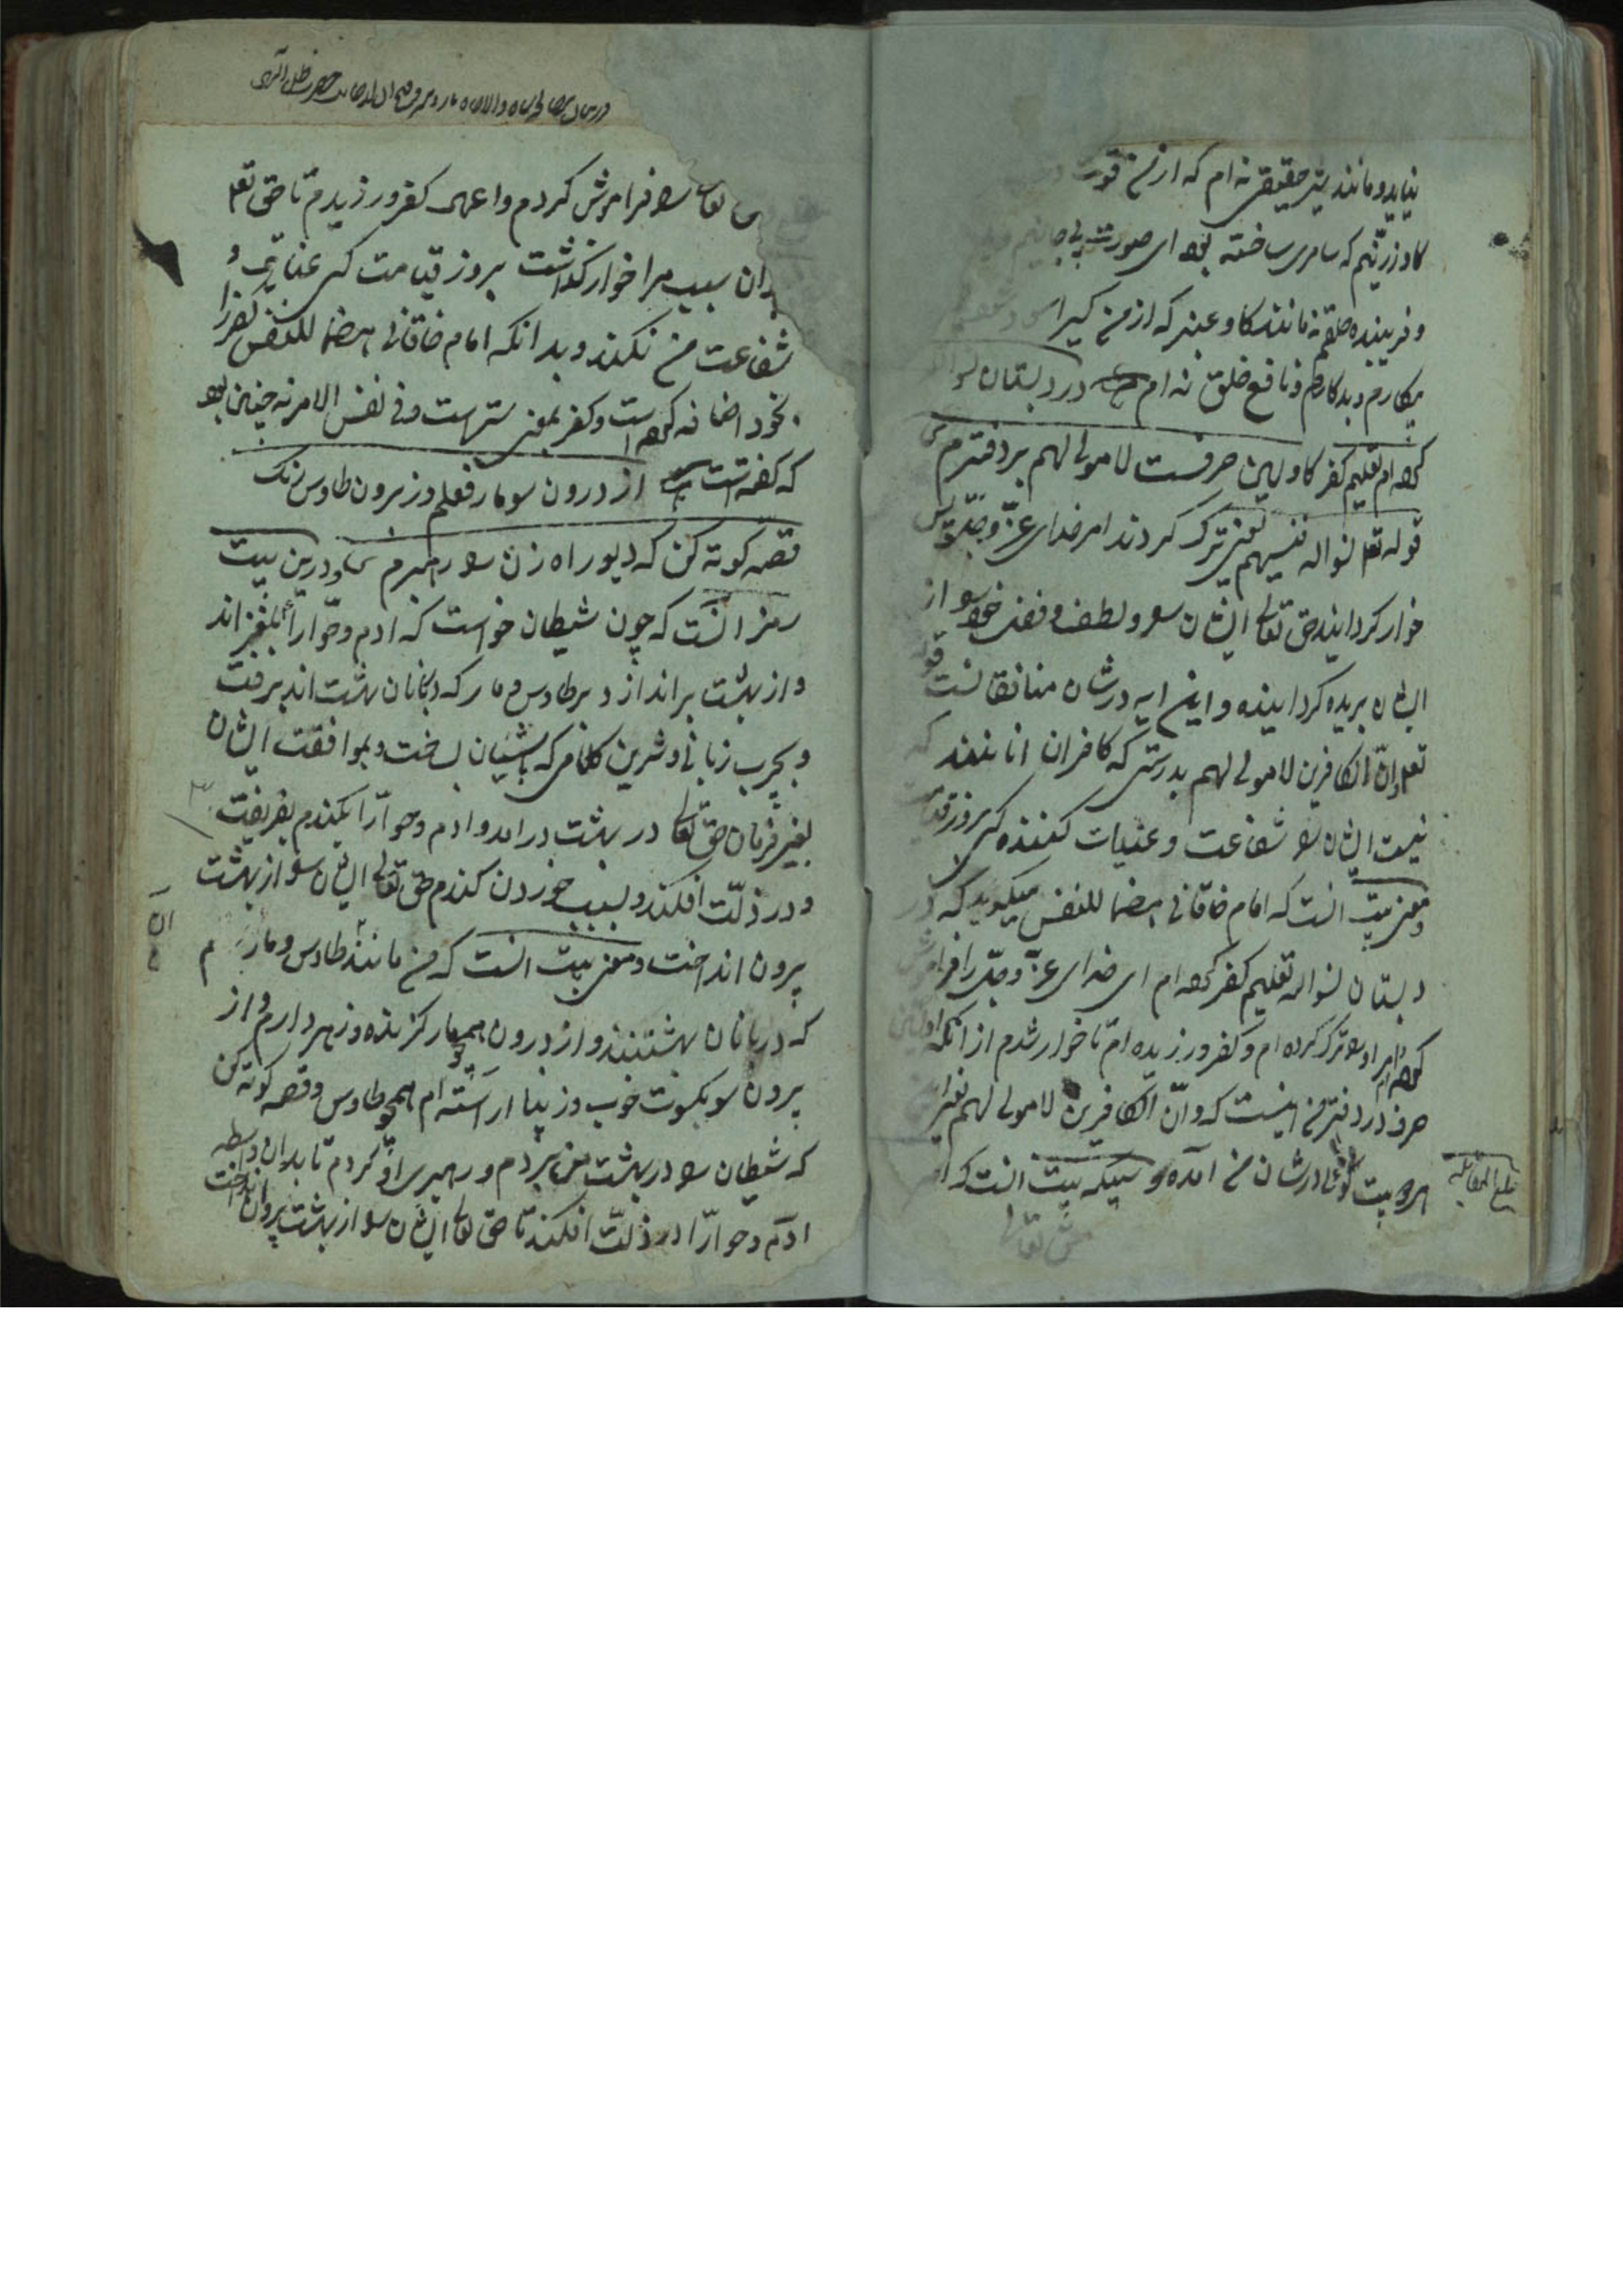 نیاید و مانند شیر حقیقی نه ام که از من قوت
کاو زرینم که سامری ساخته بود ای صورت بی جانیم
و فریبنده خلقم نه مانند کاو عنبر که از من کیرا
بیکارم و بدکارم و نافع خلق نه ام در دبستان نسوا الله
کرده ام تعلیم کفر کاولین حرفست لا مولی لهم بر دفترم
قوله تعالی نسوا الله فنسیهم یعنی ترک کردند امر خدای عز و جل پس
خوار کردانید حق تعالی ایشان را و لطف و فضل خود را از
ایشان بریده کردانیده و این ایه در شان منافقانست قوله
تعالی و ان الکافرین لا مولی لهم بدرستی که کافران انانند که
نیست ایشان را شفاعت و عنایت کننده کسی بروز
و معنی بیت انست که امام خاقانی هضما للنفس میکوید که در
دبستان نسوا الله تعلیم کفر کرده ام ای خدای عز و جل را فراموش
کرده ام امر او را ترک کرده ام و کفر ورزیده ام تا خوار شدم از انکه اولین
حرف در دفتر من اینست که و ان الکافرین لا مولی لهم یعنی این
هر دو بیت کویا در شان من امده و سبیکه بیت انست که از
حق تعالی
بلغ المقابله
تعالی را فراموش کردم و اعمی کفر ورزیدم تا حق تعالی
بدان سبب مرا خوار کذاشت بروز قیامت کس عنایتی و
شفاعت من نکند و بدانکه امام خاقانی هضما للنفس کفر را
بخود اضافه کرده است و کفر بمعنی سترست و فی نفس الامر نه چنین بود
که کفته است بیت از درون سو مار فعلم وز برون طاوس رنک
قصه کوته کن که دیو راه زن را رهبرم و درین بیت
رمز انست که چون شیطان خواست که ادم و حوا را بلغزاند
و از بهشت براندازد بر طاوس و مار که دربانان بهشت اند برفت
و بچرب زبانی و شیرین کلامی که بایشان ساخت و بموافقت ایشان
بغیر فرمان حق تعالی در بهشت درامد و ادم و حوا را بکندم بفریفت
و در زلت افکند و بسبب خوردن کندم حق تعالی ایشان را از بهشت
برون انداخت و معنی بیت انست که من مانند طاوس و مارم
که دربانان بهشتند و از درون همچو مار کزنده و زهر دارم و از
برون سو بکسوت خوب و زیبا اراسته ام همچو طاوس و قصه کوته کن
که شیطان را در بهشت من بردم و رهبری او کردم تا بدان واسطه
ادم و حوا را در زلت افکند تا حق تعالی ایشان را از بهشت برون انداخت